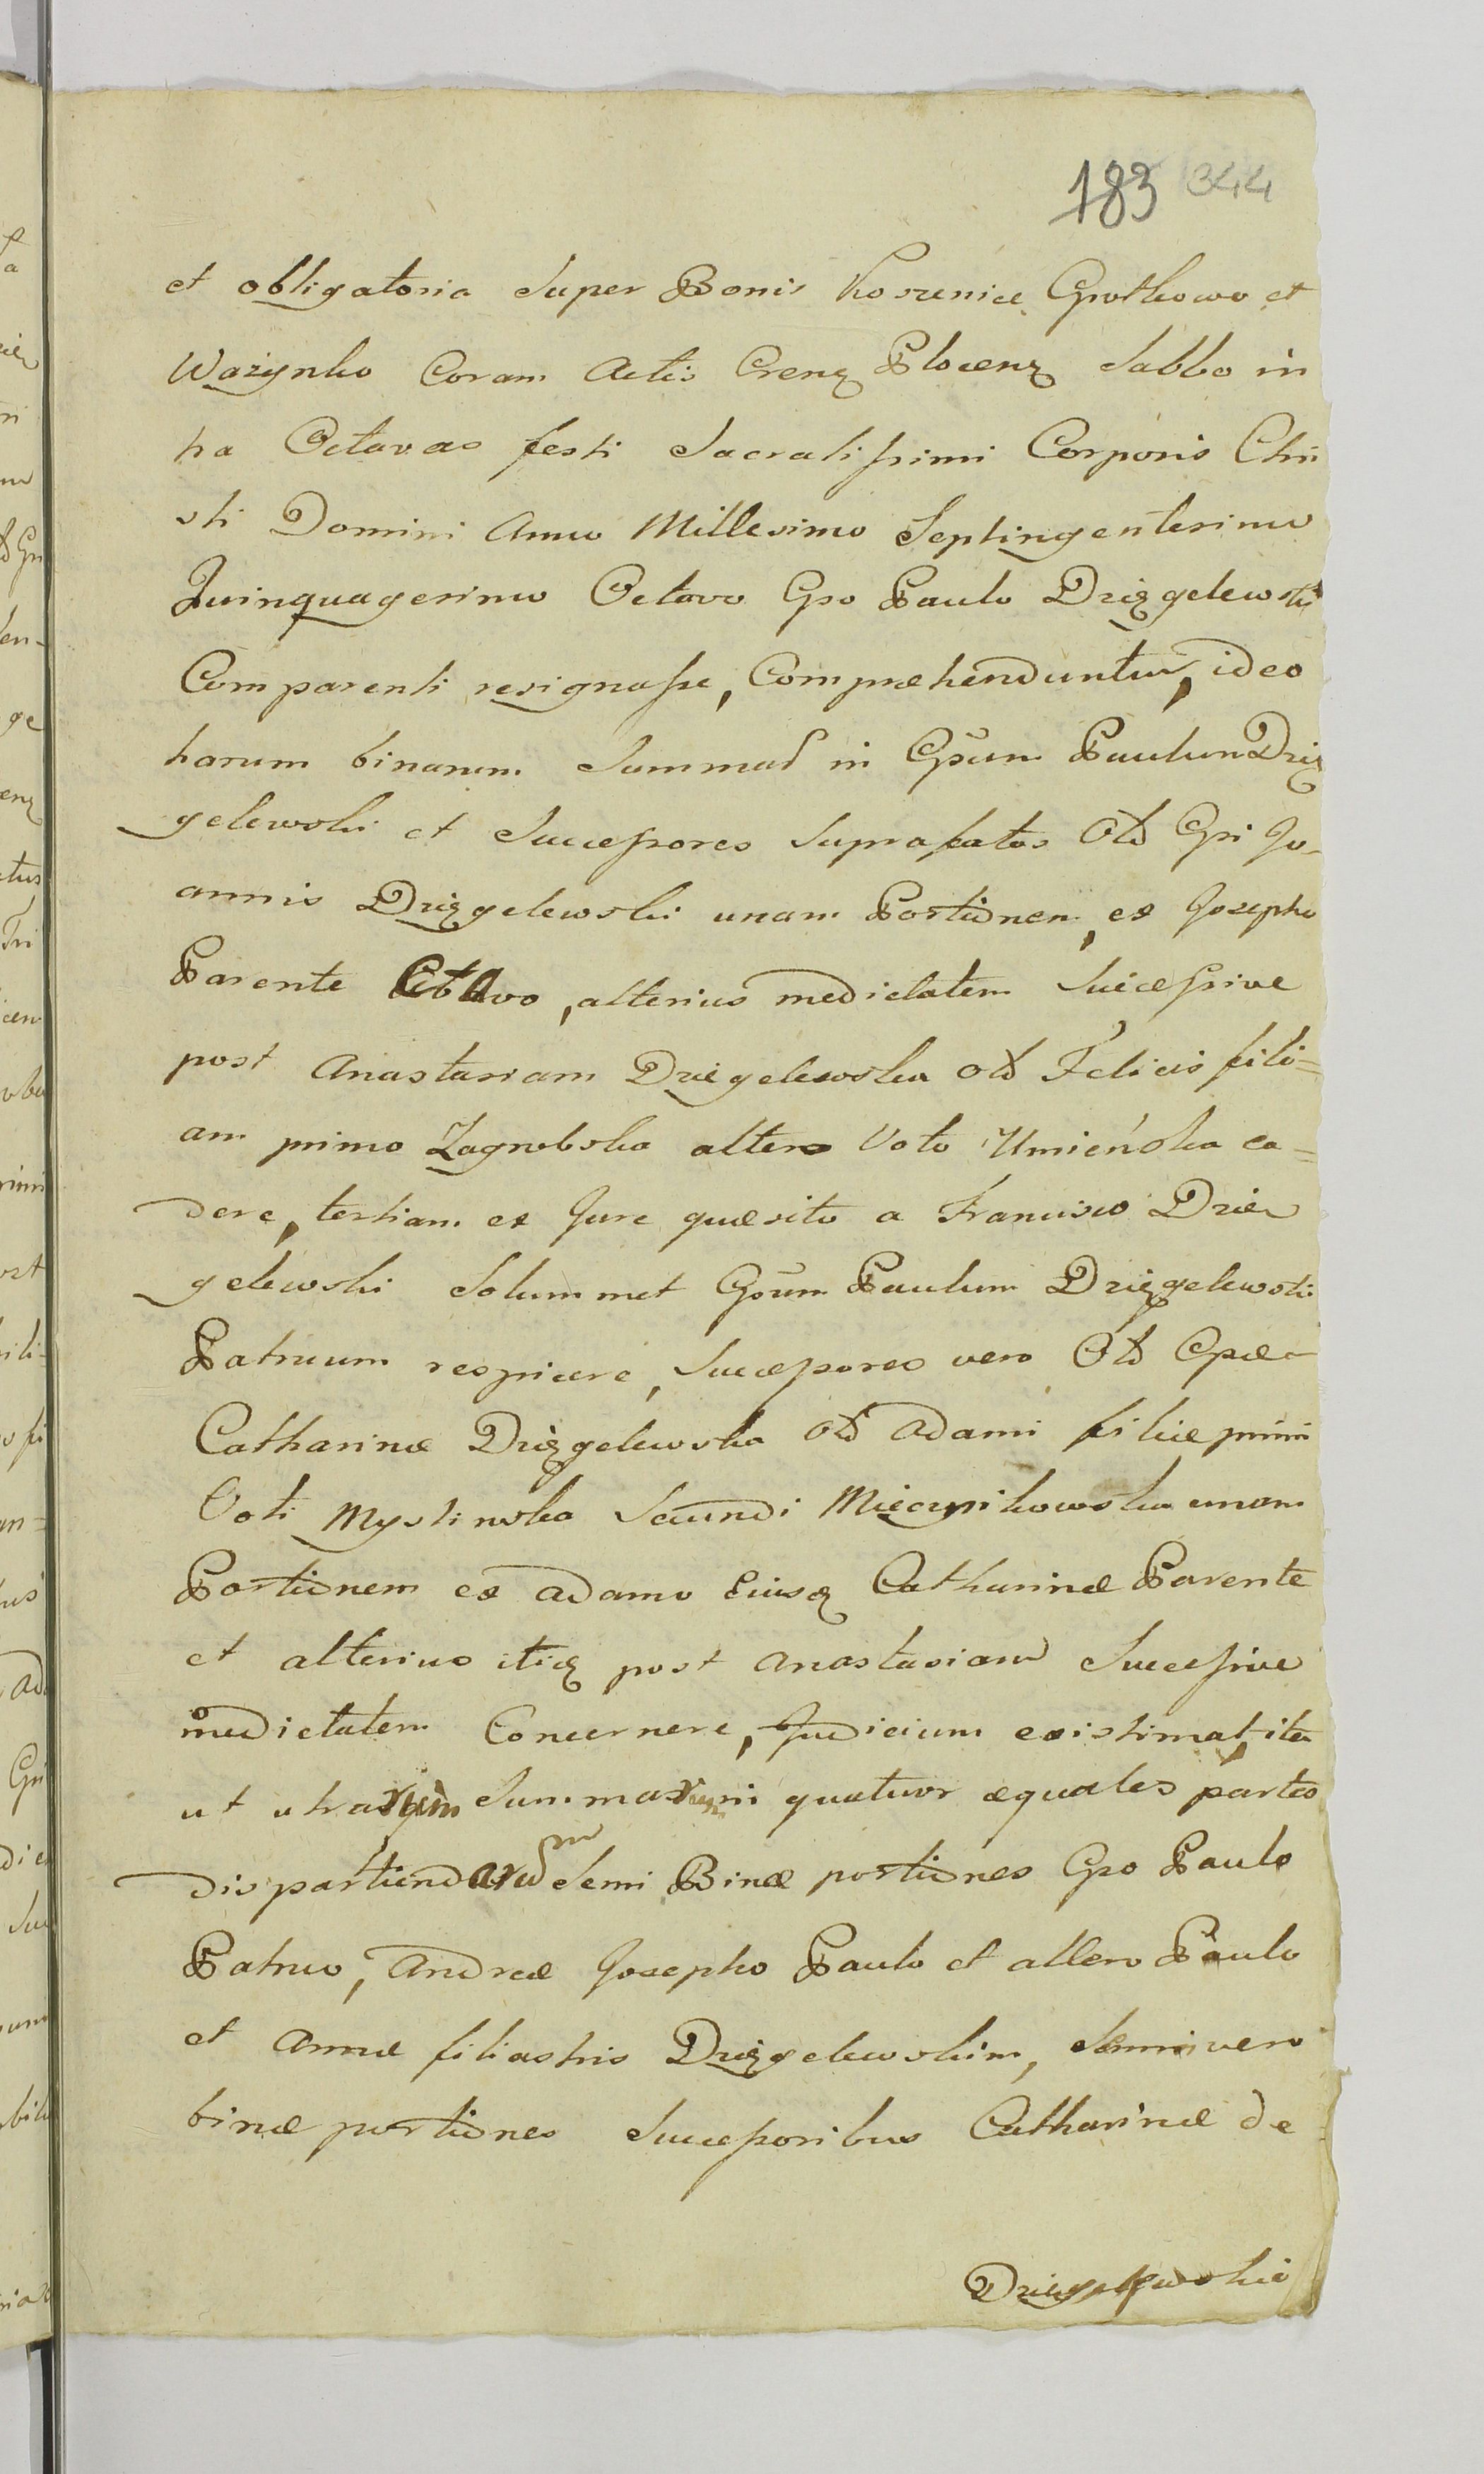 183 344
et obligatoria Super Bonis Koszenice Grotkowo et
Wazynko Coram Actis Crenz Plocenz Sabbo in
tra Octavas festi Sacratissimi Corporis Chri
sti Domini Anno Millesimo Septingentesimo
Quinquagesimo Octavo Gso Paulo Dzięgelewski
Comparenti resignasse, Compraehenduntur, ideo
harum binarum Summas in Gsum Paulum Dzię
gelewski et Successores Suprafatos Old Gsi Jo-
annis Dzięgelewski unam Portionem, ex Josepho
Parente Octavo, alterius medietatem Successive
post Anastasiam Dziegelewska old Felicis fili=
am primo Zagrobska altero Voto Umieńska ca=
dere, tertiam ex Jure quaesito a Francisco Dzie
gelewski Solummet Gsum Paulum Dzięgelewski
Patruum respicere, Successores vero Old Gsae
Catharinae Dzięgelewska old Adami filiae primi
Voti Mystinska Secundi Miecznikowska unam
Portionem ex Adamo Eiusq Catharinae Parente
et alterius itiq post Anastasiam Successive
medietatem Concernere, Judicium existimat, ita
ut utrarum Summarum in quatuor aequales partes
dispartiendarum Semi Binae portiones Gso Paulo
Patruo, Andreae Josepho Paulo et altero Paulo
et Annae filiastris Dzięgelewskim, Semi vero
binae portiones Successoribus Catharinae de
Dzięgelewskie